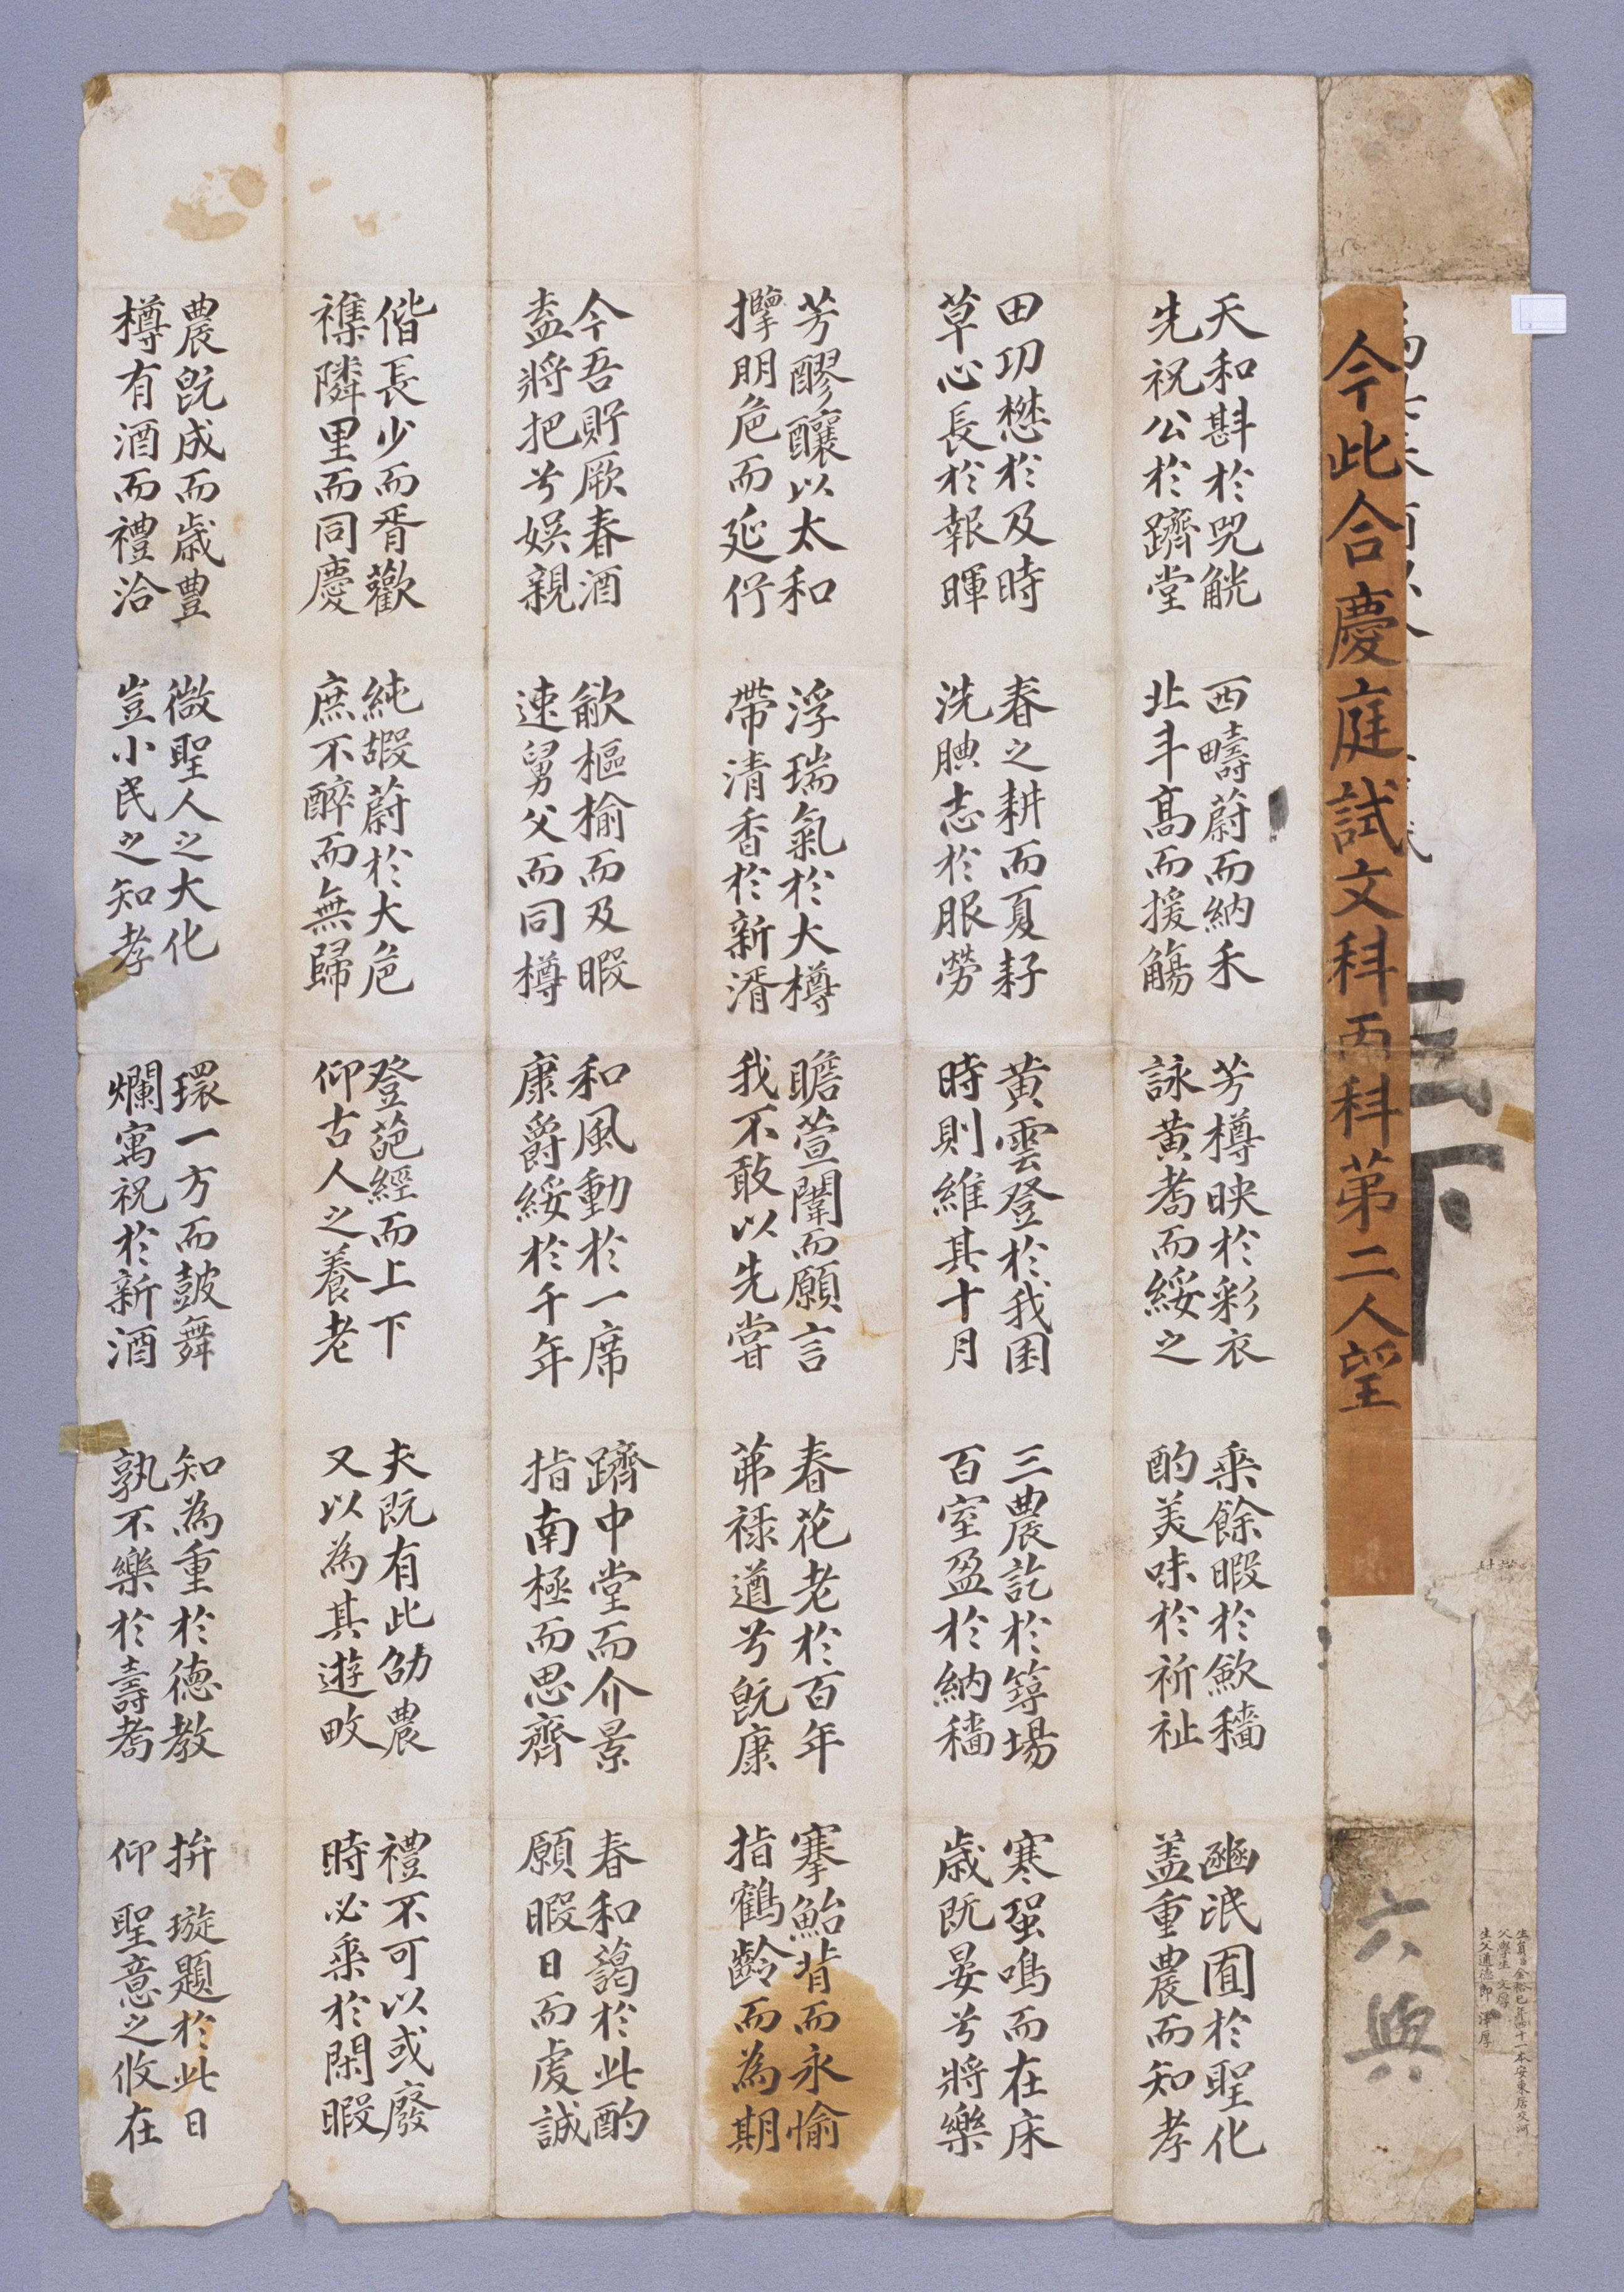 父學生 文淳
生父通德郎
三下
今此合慶庭試文科丙科第二人望
六 與
天和斟於兕觥 西疇蔚而納禾 芳樽映於彩衣 乘餘暇於歛穡 豳氓囿於聖化
先祝公於躋堂 北斗高而援觴 詠黃耈而綏之 酌美味於祈祉 盖重農而知孝
田功懋於及時 春之耕而夏耔 黃雲登於我囷 三農訖於築場 寒蛩鳴而在床
草心長於報暉 洗腆志於服勞 時則維其十月 百室盈於納穡 歲旣晏兮將樂
芳醪釀以太和 浮瑞氣於大樽 瞻萱闈而願言 春花老於百年 搴鮐背而永愉
擥朋巵而延佇 帶清香於新湑 我不敢以先嘗 茀祿遒兮旣康 指鶴齡而為期
今吾貯厥春酒 歈樞楡而及暇 和風動於一席 躋中堂而介景 春和藹於此酌
盍將把兮娛親 速舅父而同樽 康爵綏於千年 指南極而思齊 願暇日而虔誠
偕長少而胥歡 純嘏蔚於大巵 登葩經而上下 夫旣有此劭農 禮不可以或廢
襍隣里而同慶 庶不醉而無歸 仰古人之養老 又以為其遊畋 時必乘於閑暇
農旣成而歲豊 微聖人之大化 環一方而皷舞 知為重於德教 拚 璇題於此日
樽有酒而禮洽 豈小民之知孝 爛寓祝於新酒 孰不樂於壽耈 仰 聖意之攸在